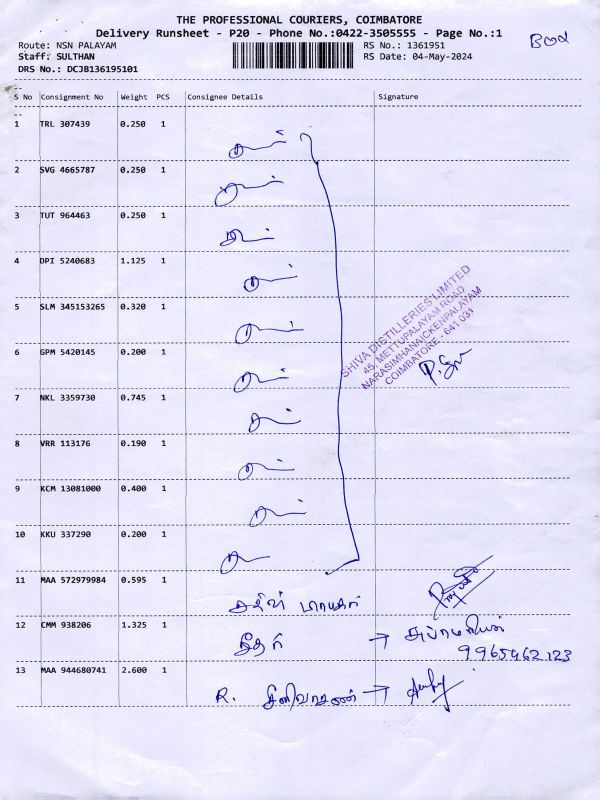 THE PROFESSIONAL COURIERS, COIMBATORE
Delivery Runsheet - P20 - Phone No.:0422-3505555 - Page No.:1
Route: NSN PALAYAM
RS No.: 1361951
Staff: SULTHAN
RS Date: 04-May-2024
DRS No.: DCJB136195101
S No Consignment No Weight PCS Consignee Details Signature
1 TRL 307439 0.250 1
2 SVG 4665787 0.250 1
3 TUT 964463 0.250 1
4 DPI 5240683 1.125 1
5 SLM 345153265 0.320 1
SHIVA DISTILLERIES LIMITED
45, METTUPALAYAM ROAD
NARASIMHANAICKENPALAYAM
COIMBATORE - 641 031
6 GPM 5420145 0.200 1
7 NKL 3359730 0.745 1
8 VRR 113176 0.190 1
9 KCM 13081000 0.400 1
10 KKU 337290 0.200 1
11 MAA 572979984 0.595 1
12 CMM 938206 1.325 1
9965462123
13 MAA 944680741 2.600 1
R. சீனிவாசன் →